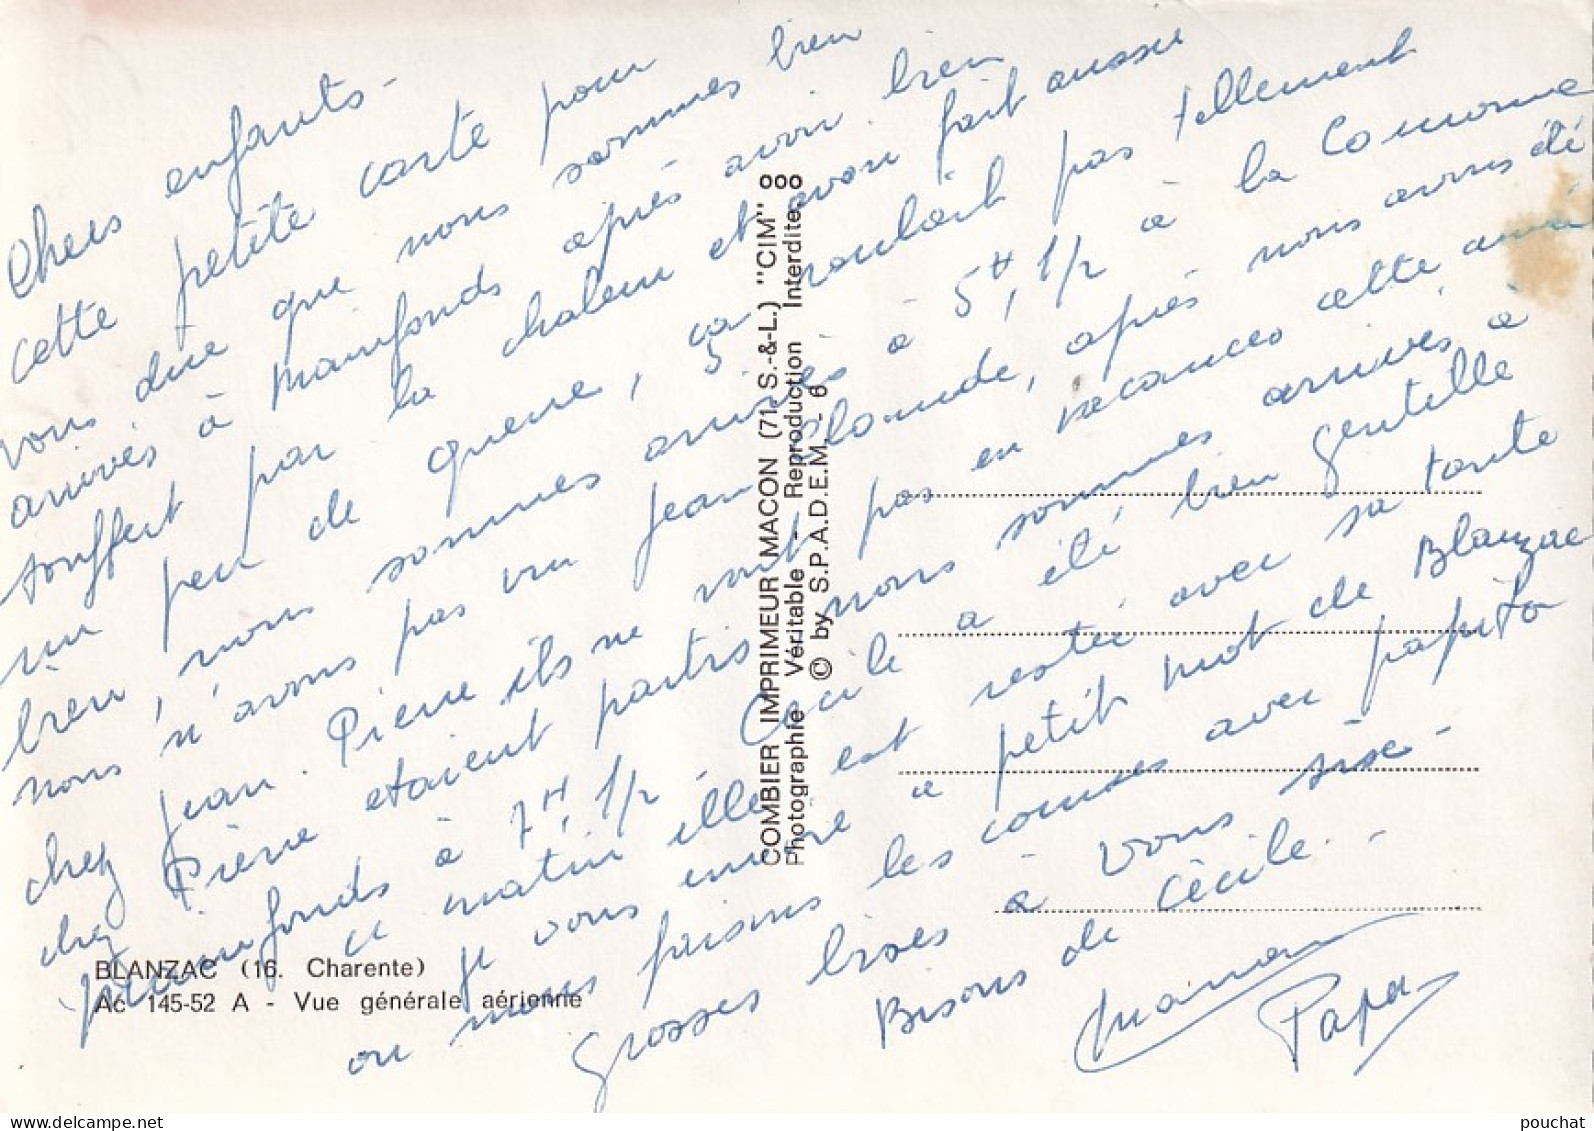 Chers enfants -
cette petite carte pour
vous dire que nous sommes bien
arrivés à mainfonds après avoir bien
souffert par la chaleur et avons fait aussi
un peu de queue, ça roulait pas tellement
bien, nous sommes arrivés à 5H, 1/2 à la Couronne
nous n'avons pas vu Jean Claude, après nous avons été
chez Jean. Pierre ils ne vont pas en vacances cette
chez Pierre etaient partis nous sommes arrivés à
mainfonds à 7H, 1/2 Cécile a été bien gentille
ce matin elle est restée avec sa tante
je vous a petit mot de Blanzac
ou nous faisons les courses avec papito
Grosses bises à vous
Bisous de Cécile. -
maman
Papa
COMBIER IMPRIMEUR MACON (71. S.-&-L.) "CIM"
Photographie Véritable - Reproduction Interdite
© by S.P.A.D.E.M. - 6
BLANZAC (16. Charente)
Ac 145-52 A - Vue générale aérienne
www.delcampe.net
pouchat